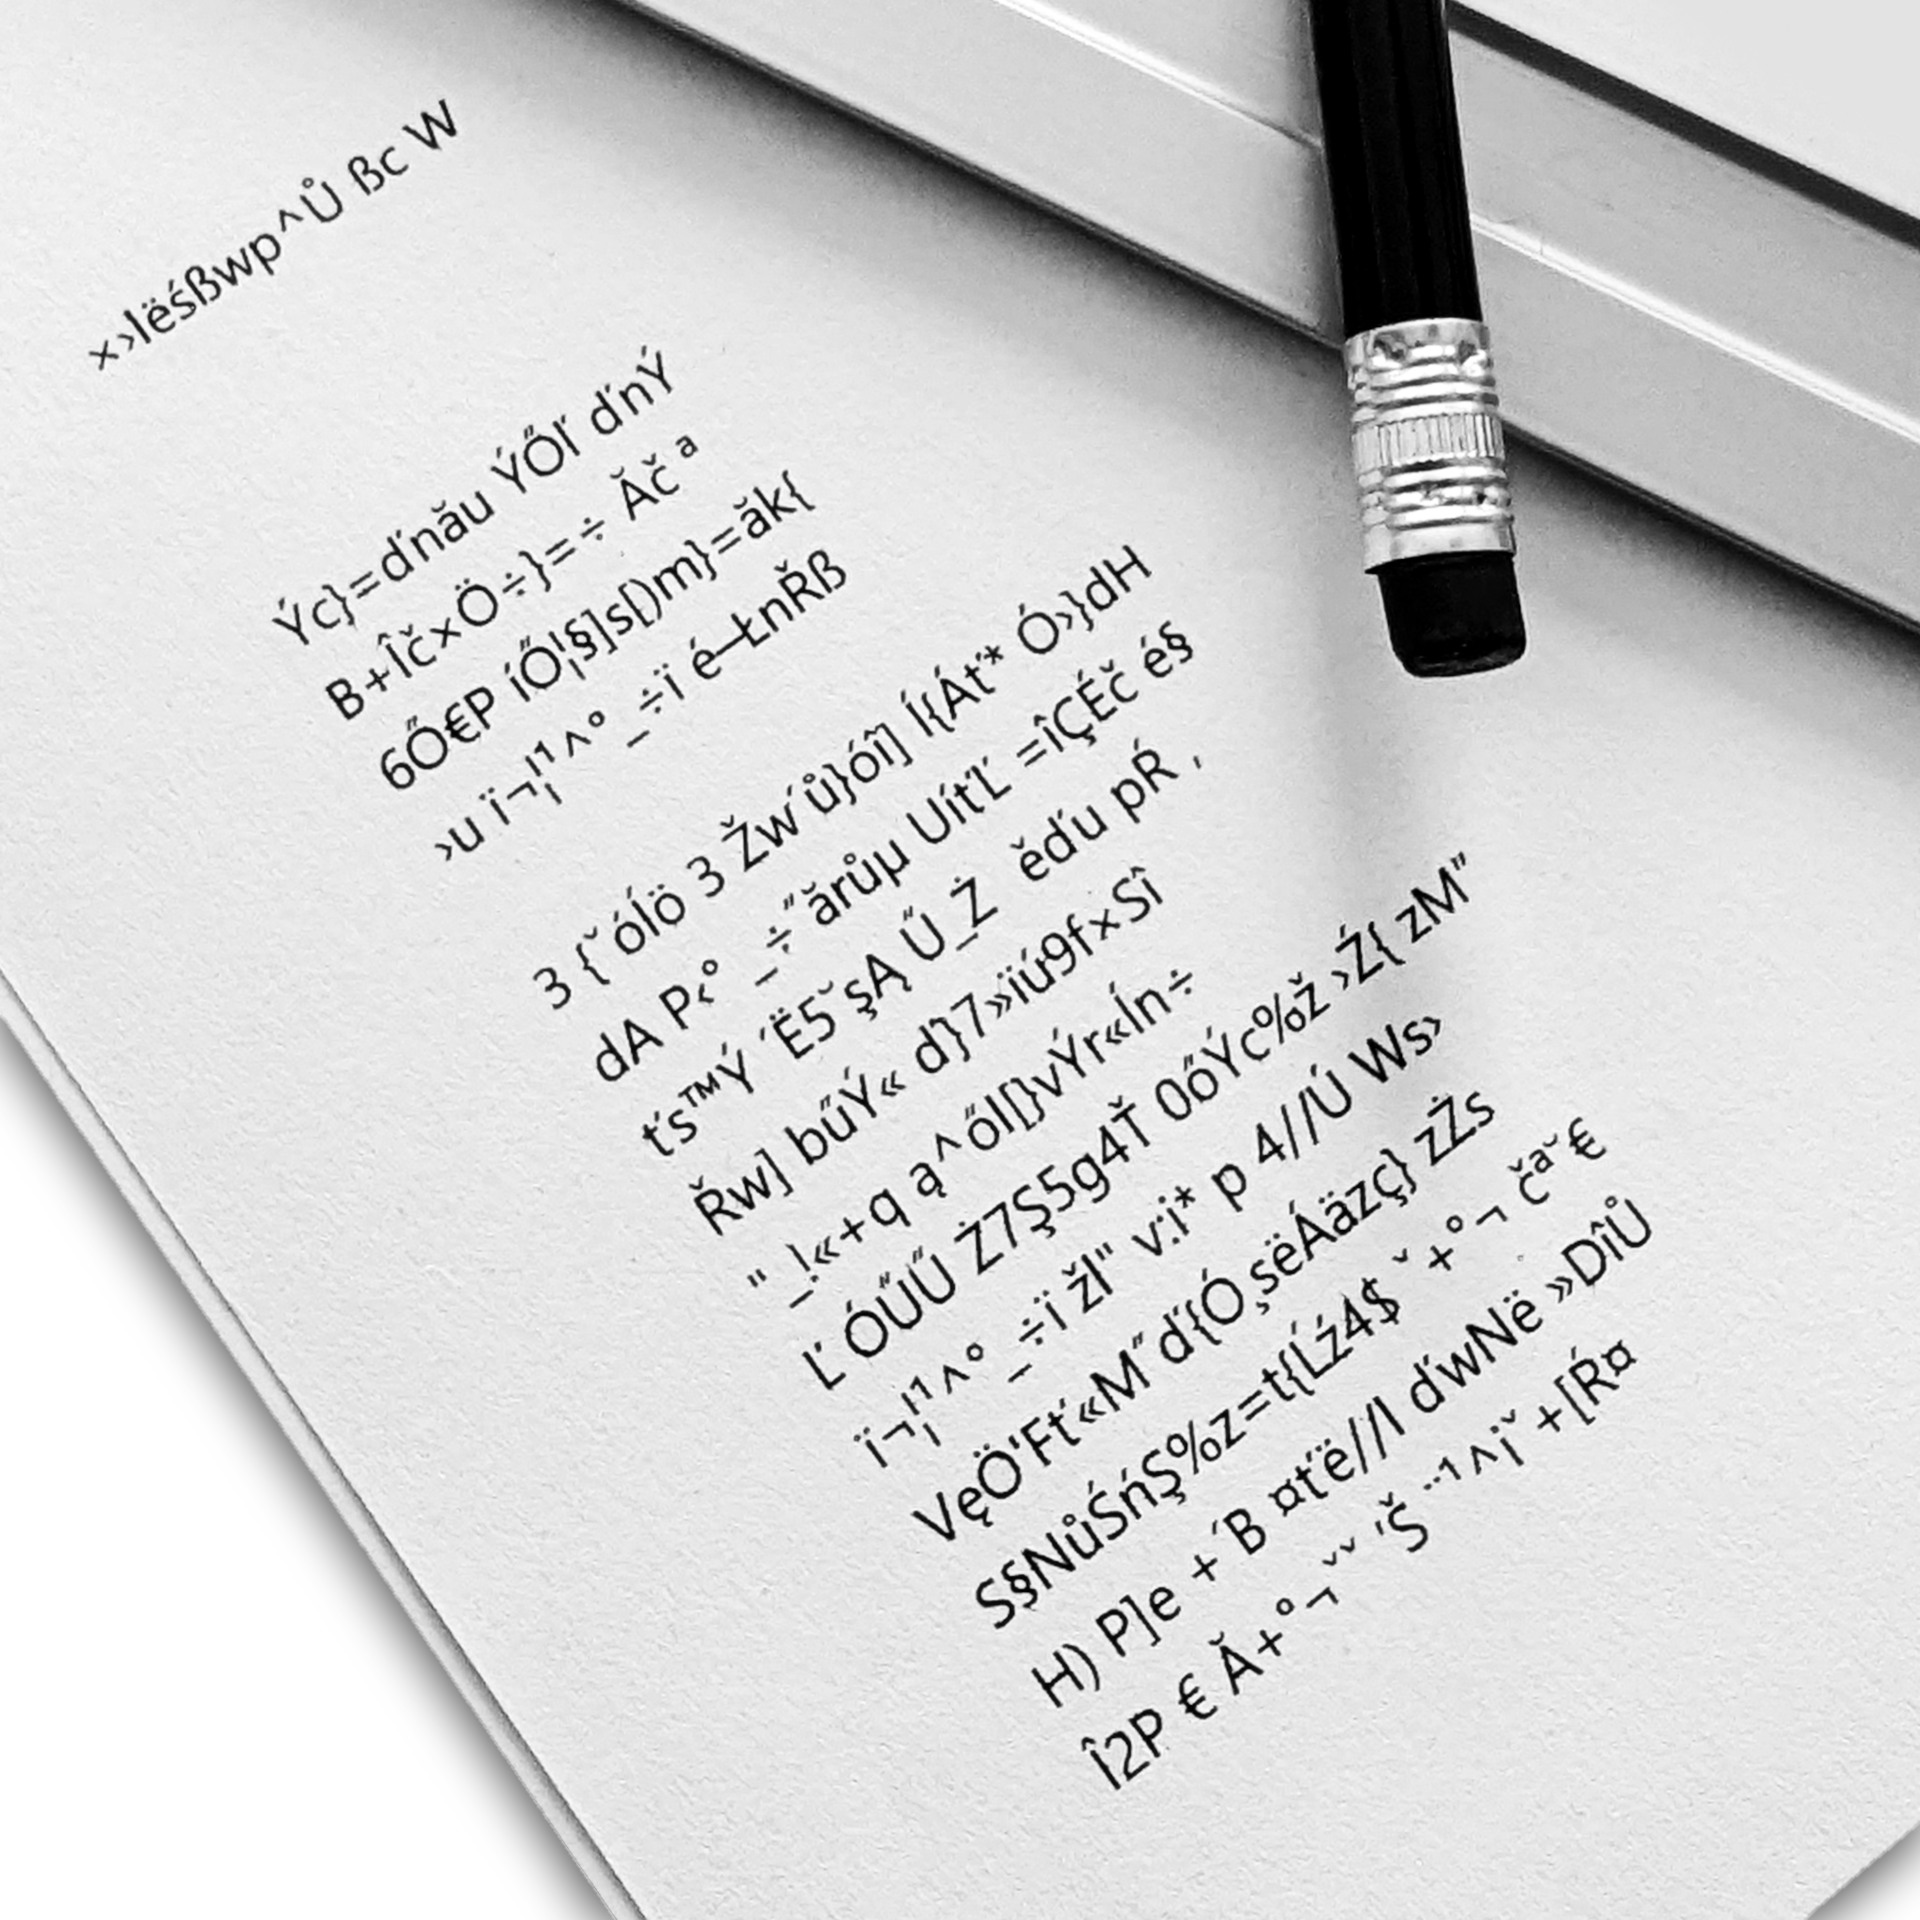 ×›lëśßwp^Ů ßc W
Ýc}=ďnău ÝŐľ ďnÝ
B+Îč×Ö÷}=÷ Ăč ª
6Ő€P íŐ¦§]s[)m}=ăk{
›u ï¬¦¹^° _÷ï é—ŁnŘß
3 {˘óÍö 3 Žw´ů}óî] Í{Áť* Ó›}dH
dA P‹° _÷˝ărůµ UíťĽ =îÇÉč é§
ťs™Ý ´Ë5˘şĄ Ű_Ż ěďu pŔ ‚
Řw] bűÝ« d}7»ïú9f×Sî
"_!«+q ą^őI[}vÝr«Ín÷
Ľ ÓŰŰ Ż7Ş5g4Ť 0őÝc%ž ›Ź{ zM˝
ï¬¦¹^° _÷ï žI" v:i* p 4//Ú Ws›
VęÖ'Fť«M˝ď{Ó¸sëÁäzç} zŻs
S§NůŚńŞ%z=t{Ĺź4$ ˇ+°¬ čª˘€
H) P]e +´B ¤ťë//I ďwNë »DîŮ
Î2P € Ă+°¬ˇˇ ‘Š ¨¹^¡ˇ+[Ŕ¤